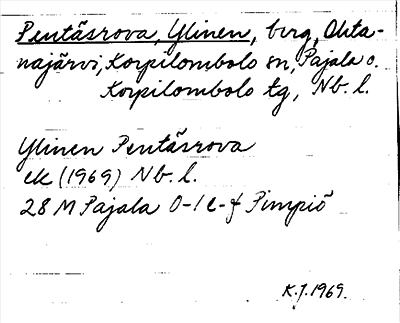 Pentäsrova, Ylinen, berg, Ohta-
najärvi, Korpilombolo sn, Pajala o.
Korpilombolo tg, Nb. l.
Ylinen Pentäsrova
ek (1969) Nb. l.
28 M Pajala 0-1 e-f Pimpiö
K.J. 1969.